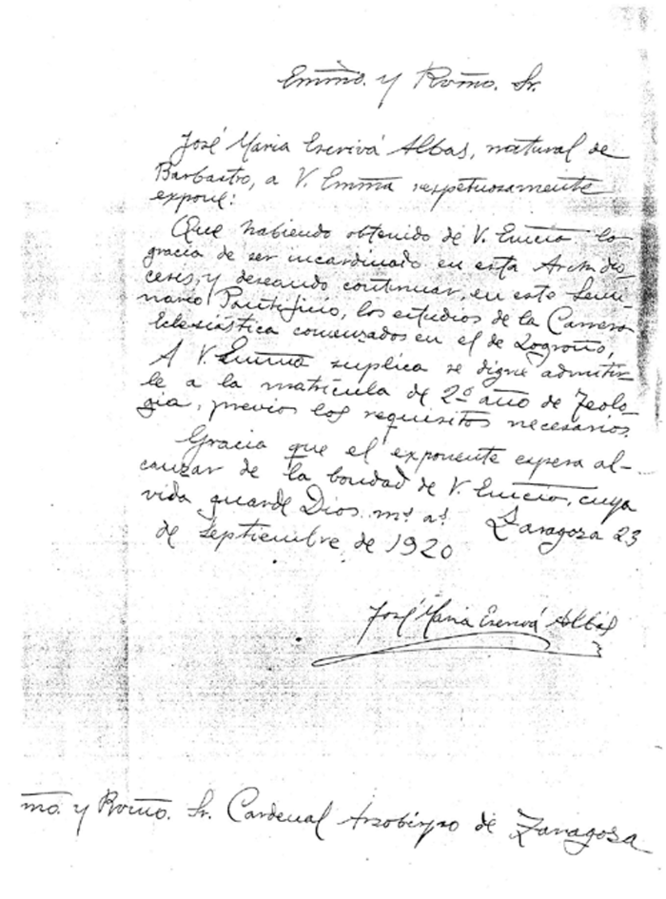 Emmo. y Rvmo. Sr.
José Maria Escrivá Albas, natural de
Barbastro, a V. Emma respetuosamente
expone:
Que habiendo obtenido de V. Emcia la
gracia de ser incardinado en esta Archidió-
cesis, y deseando continuar, en este Semi-
nario Pontificio, los estudios de la Carrera
Eclesiástica comenzados en el de Logroño,
A V. Emma suplica se digne admitir-
le a la matrícula de 2º año de Teolo-
gia, previos los requisitos necesarios.
Gracia que el exponente espera al-
canzar de la bondad de V. Emcia, cuya
vida guarde Dios ms. as. Zaragoza 23
de septiembre de 1920
José Maria Escrivá Albás
mo. y Rvmo. Sr. Cardenal Arzobispo de Zaragoza